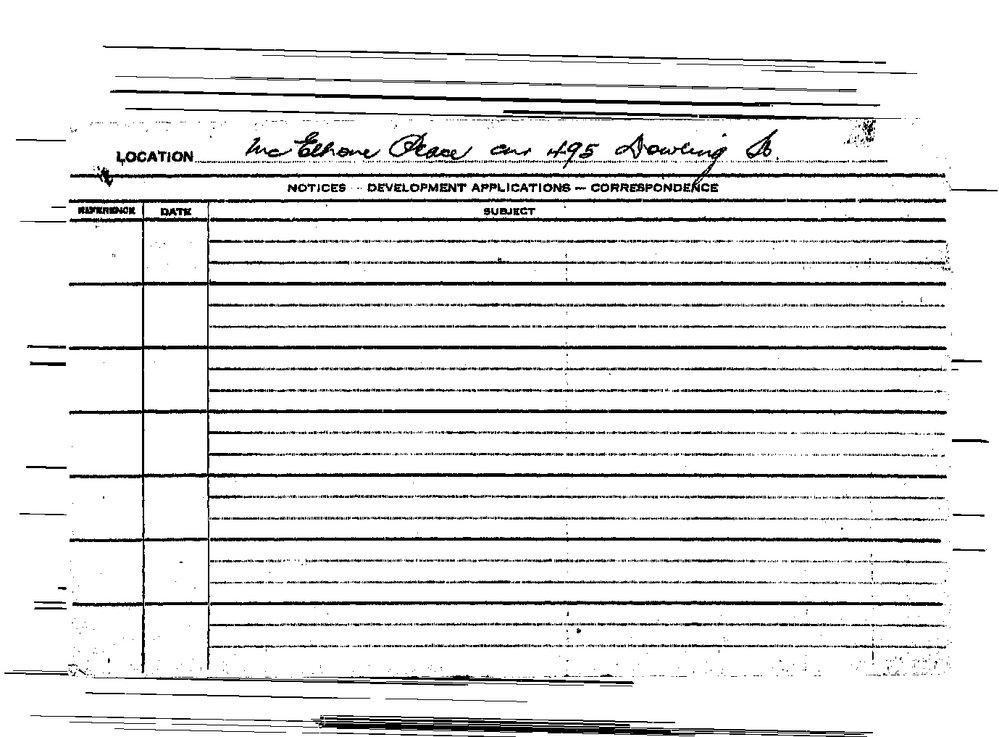 LOCATION Mc Elhone Place cnr 495 Dowling St.
NOTICES - DEVELOPMENT APPLICATIONS — CORRESPONDENCE
REFERENCE DATE SUBJECT